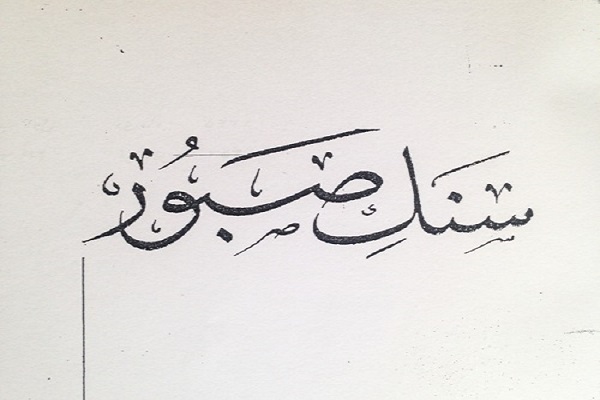 سَنَكِ صَبُورْ